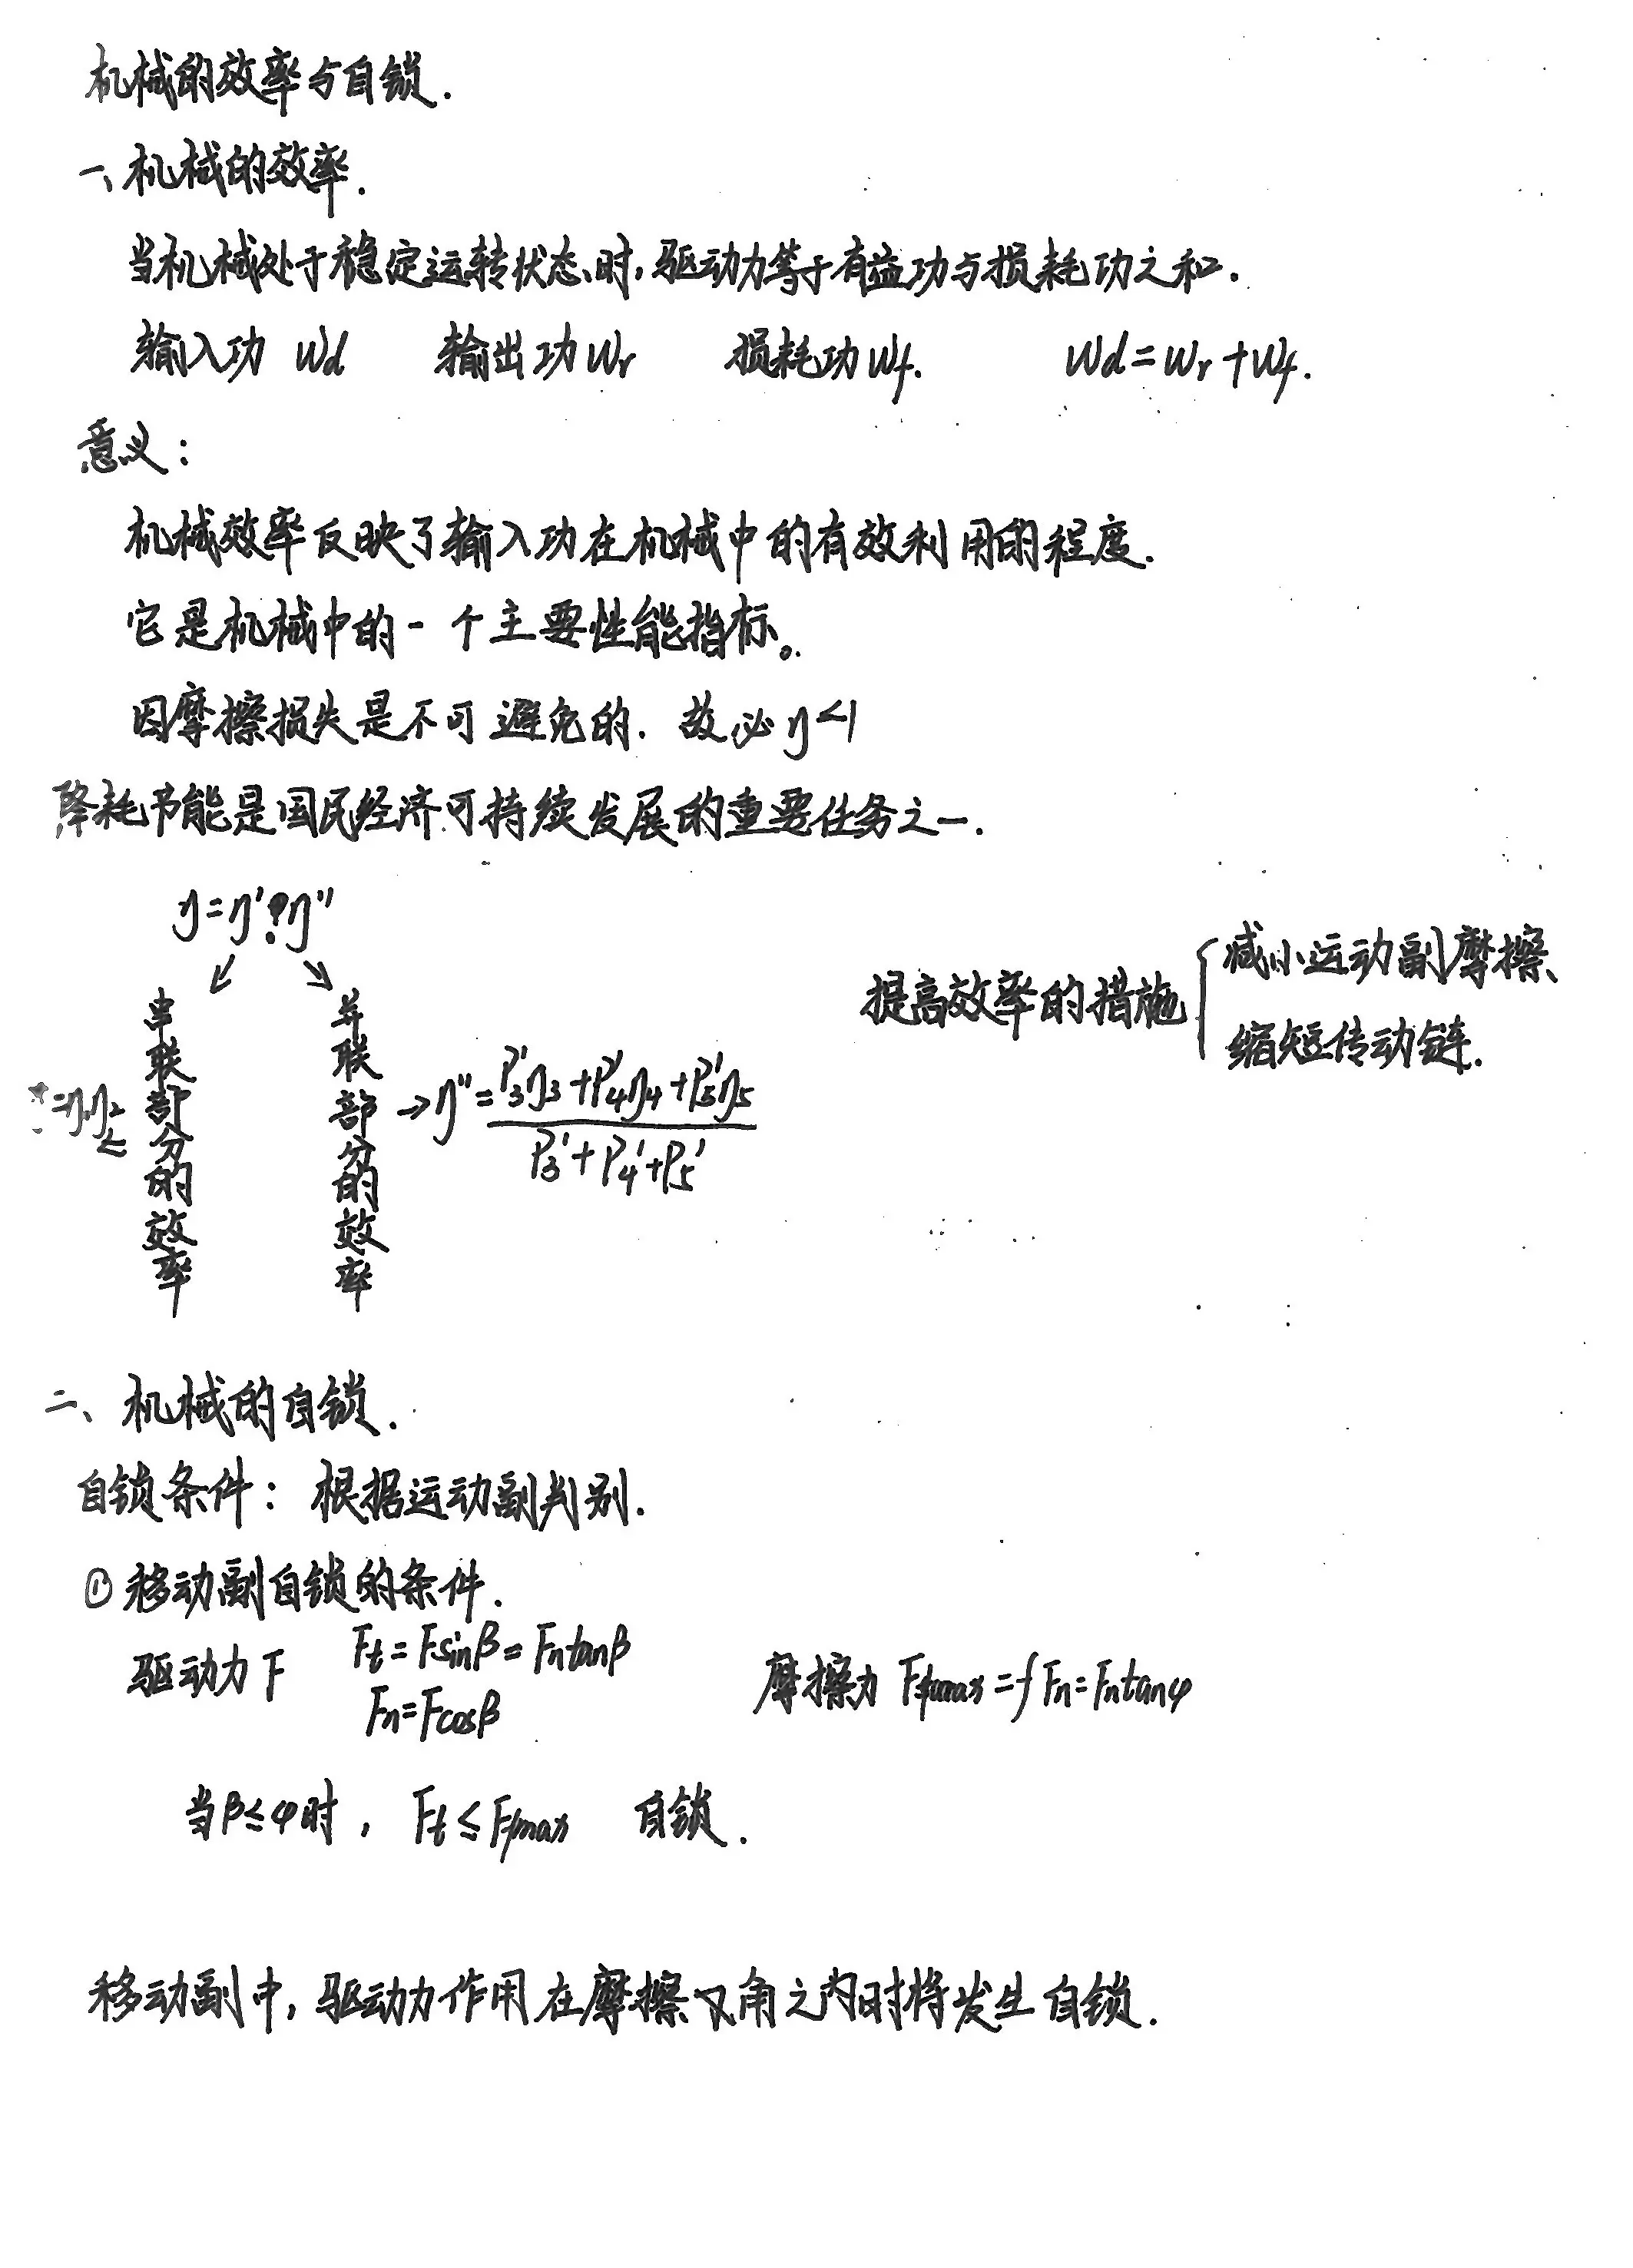 机械的效率与自锁.
一、机械的效率.
当机械处于稳定运转状态时,驱动力等于有益功与损耗功之和.
输入功 Wd 输出功Wr 损耗功Wf. Wd=Wr+Wf.
意义:
机械效率反映了输入功在机械中的有效利用的程度.
它是机械中的一个主要性能指标。
因摩擦损失是不可避免的. 故必η<1
降耗节能是国民经济可持续发展的重要任务之一.
η=η'?η"
↙ ↘
=η₁η₂ 串联部分的效率
并联部分的效率 →η"=(P₃'η₃+P₄'η₄+P₅'η₅)/(P₃'+P₄'+P₅')
提高效率的措施{减小运动副摩擦、
缩短传动链.
二、机械的自锁.
自锁条件: 根据运动副判别.
① 移动副自锁的条件.
驱动力F Ft=Fsinβ=Fntanβ
Fn=Fcosβ
摩擦力 Ffmax=fFn=Fntanφ
当β≤φ时, Ft≤Ffmax 自锁.
移动副中,驱动力作用在摩擦角之内时将发生自锁.